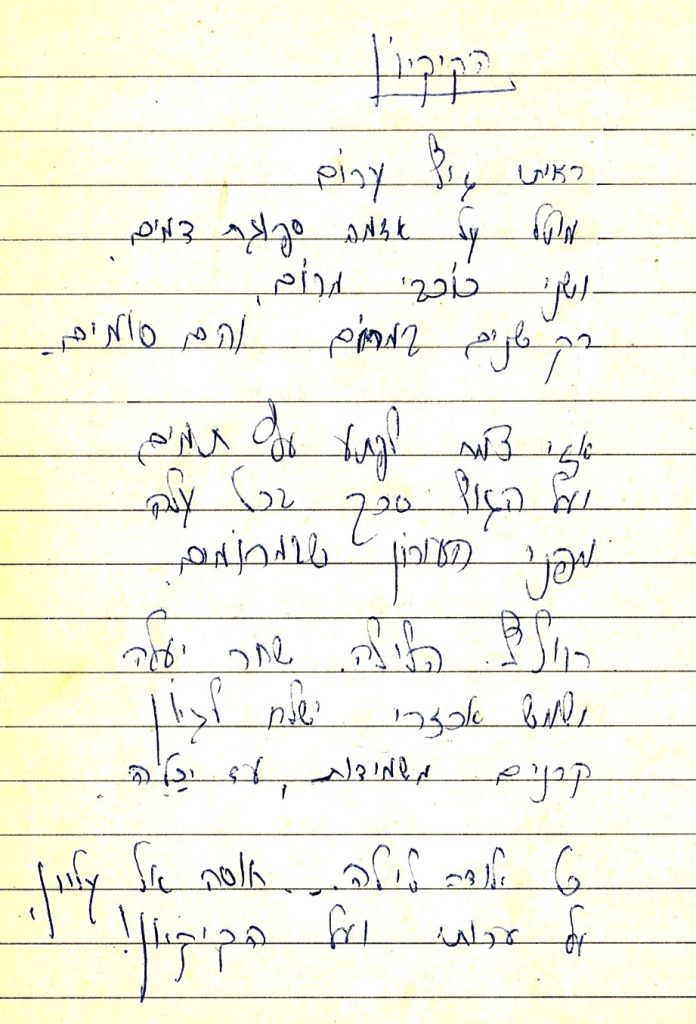 הקיקיון
ראיתי גוף ערום
מוטל על אדמה ספוגת דמים.
ושני כוכבי מרום,
רק שנים במרום והם סומים.
אזי צמח לפתע עץ תמים
ועל הגוף סכך בכל עלה
מפני העורון שבמרומים.
חולף הלילה. שחר יעלה
ושמש אכזרי ישלח לגיון
קרנים משמידות, עד יכלה.
לילה... חוסה אל עליון,
על ערותי ועל הקיקיון!